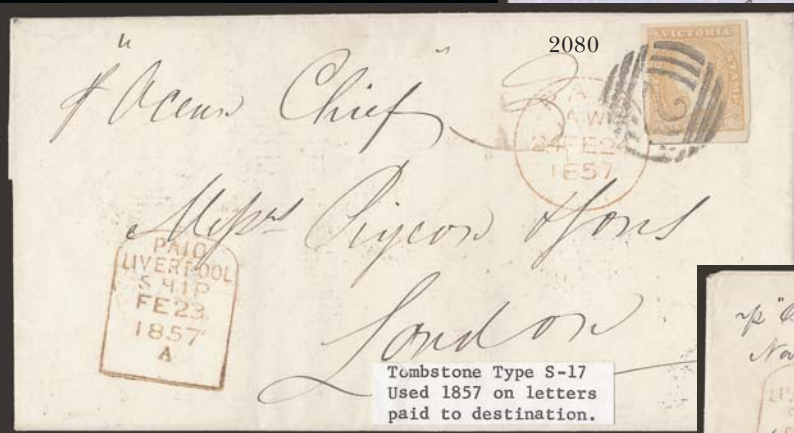 2080
VICTORIA
STAMP
p "Ocean Chief"
24 FE 24
1857
Messrs Pigeon & Sons
London
PAID
LIVERPOOL
SHIP
FE 23
1857
A
Tombstone Type S-17
Used 1857 on letters
paid to destination.